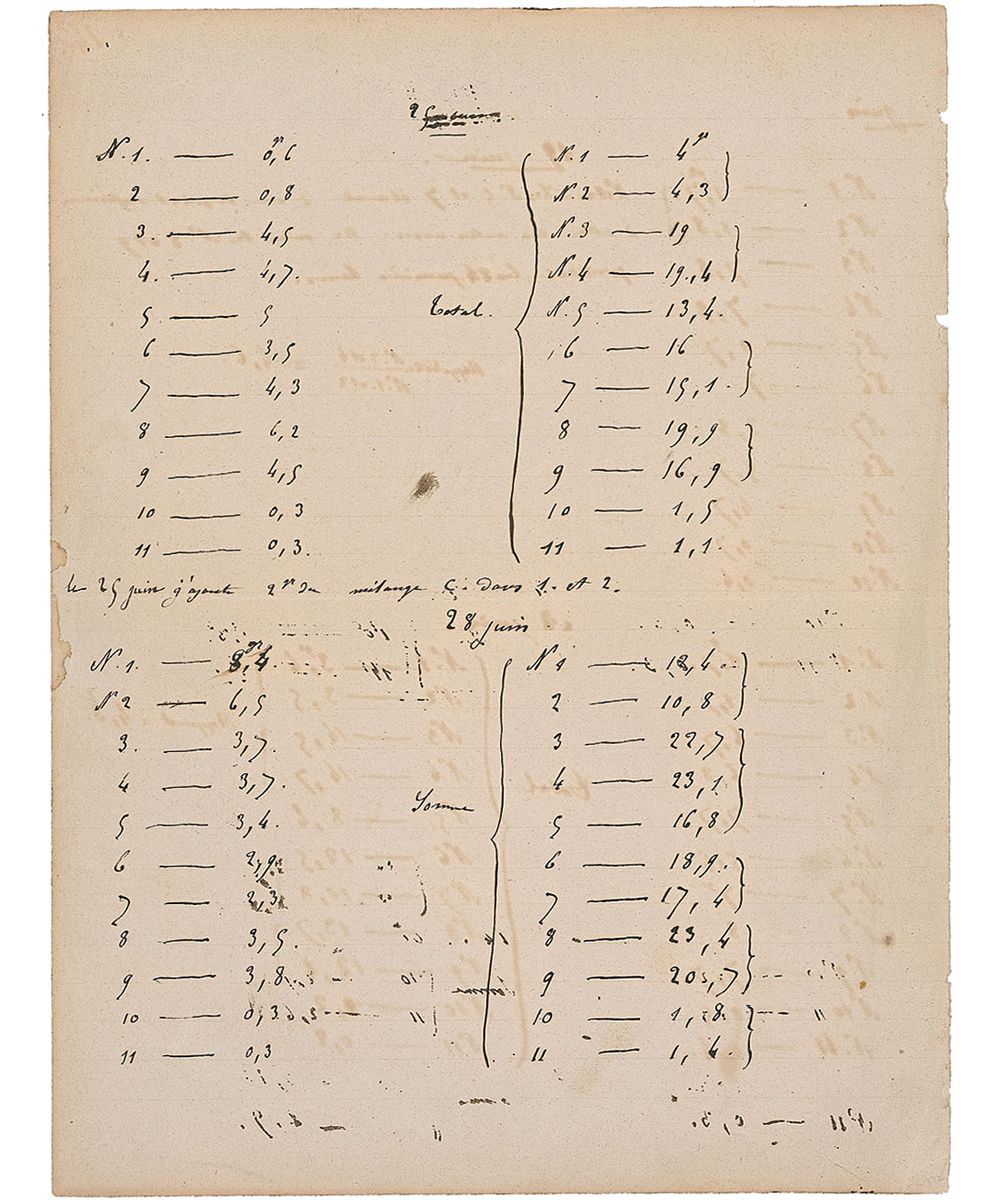 25 juin
N. 1. — 0gr,6
2 — 0,8
3. — 4,5
4. — 4,7.
5 — 5
6 — 3,5
7 — 4,3
8 — 6,2
9 — 4,5
10 — 0,3
11 — 0,3.
Total.
N. 1 — 4gr
N. 2 — 4,3
N. 3 — 19
N. 4 — 19,4
N. 5 — 13,4.
6 — 16
7 — 15,1.
8 — 19,9
9 — 16,9
10 — 1,5
11 — 1,1.
le 25 juin j'ajoute 2gr du mélange C. dans 1. et 2.
28 juin
N. 1. — 8gr,4
N 2 — 6,5
3. — 3,7.
4 — 3,7.
5 — 3,4.
6 — 2,9
7 — 2,3
8 — 3,5.
9 — 3,8
10 — 0,3
11 — 0,3
Somme
N 1 — 12,4.
2 — 10,8
3 — 22,7
4 — 23,1
5 — 16,8
6 — 18,9.
7 — 17,4
8 — 23,4
9 — 20,7
10 — 1,8
11 — 1,4.